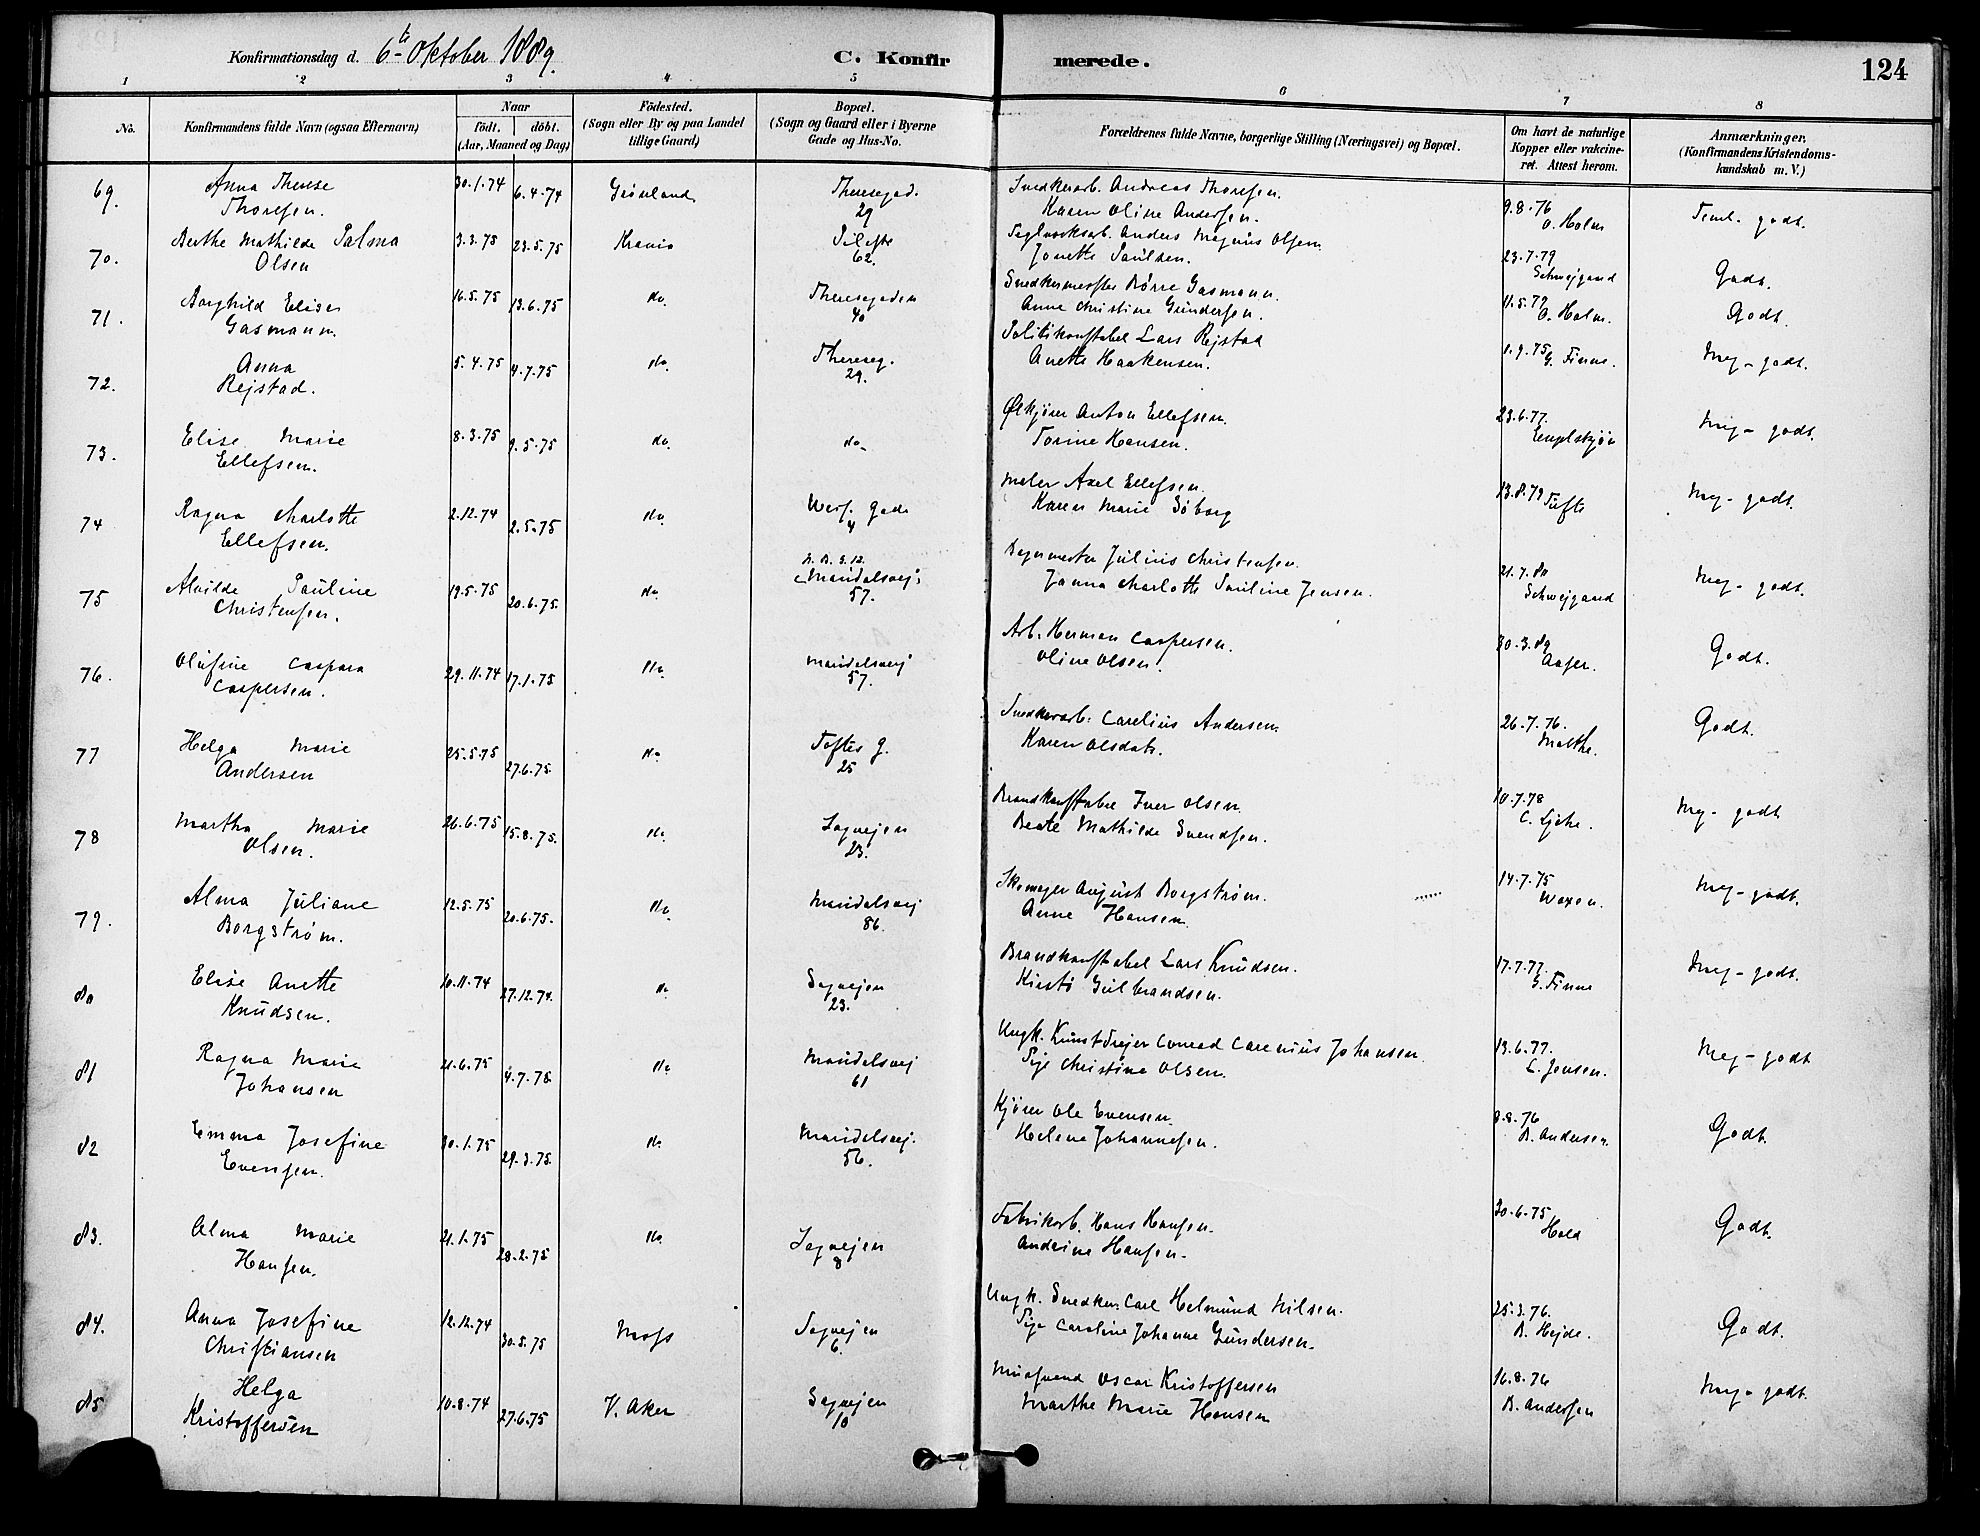 Konfirmationsdag d. 6te Oktober 1889.
C. Konfirmerede.
124
1 2 3 4 5 6 7 8
No.
Konfirmandens fulde Navn (ogsaa Efternavn)
Naar
födt. döbt.
(Aar, Maaned og Dag)
Födested.
(Sogn eller By og paa Landet
tillige Gaard)
Bopæl.
(Sogn og Gaard eller i Byerne
Gade og Hus-No.
Forældrenes fulde Navne, borgerlige Stilling (Næringsvei) og Bopæl.
Om havt de naturlige
Kopper eller vakcine-
ret. Attest herom.
Anmærkninger.
(Konfirmandens Kristendoms-
kundskab m. V.)
69. Anna Therese 30.1.74 6.4.74 Grönland Theresegad. Snedkerarb. Andreas Thoresen.
Thoresen. 29 Karen Oline Andersen. 9.8.76 O. Holm Teml. godt.
70. Berthe Mathilde Palma 3.3.75 23.5.75 Pilestr. Teglverksarb. Anders Magnus Olsen.
Olsen 62. Jonette Paulsen. 23.7.79 Schweigaard Godt.
71. Borghild Elise 16.5.75 13.6.75 do. Theresegaden Snedkermester Börre Gasmann.
Gasmann. 40 Anne Christine Gundersen. 11.5.79 O. Holm. Godt.
72. Anna 5.4.75 4.7.75 do. Thereseg. Politikonstabel Lars Rejstad
Rejstad. 29. Anette Haakensen. 1.9.75 G. Finne. Meg. godt.
73. Elise Marie 8.3.75 9.5.75 do. do. Ølkjörer Anton Ellefsen.
Ellefsen. Torine Hansen. 23.6.77. Engelskjön Meg. godt.
74 Ragna Charlotte 2.12.74 2.5.75 do. Gade Maler Axel Ellefsen.
Ellefsen. 4 Karen Marie Söborg 13.8.79 Tufte Meg. godt.
75 Alvilde Pauline 19.5.75 20.6.75. do. Maridalsvej Bagermester Julius Christensen.
Christensen. 57. Janna Charlotte Pauline Jensen. 21.7.80 Schweigaard Meg. godt.
76. Olufine Caspara 29.11.74 17.1.75 do. Maridalsvej Arb. Herman Caspersen.
Caspersen. 57. Oline Olsen. 30.3.89 Aaser. Godt.
77 Helga Marie 25.5.75 27.6.75. do. Toftes g. Snedkerarb. Carelius Andersen.
Andersen 25 Karen Olsdatr. 26.7.76. Malthe. Godt.
78 Martha Marie 26.6.75 15.8.75. do. Sagvejen Brandkonstabel Iver Olsen.
Olsen. 23. Beate Mathilde Svendsen. 10.7.78 Meg. godt
79. Alma Juliane 12.5.75 20.6.75. do. Maridalsvej Skomager August Borgström.
Borgström. 86. Anne Hansen. 14.7.75 Meg. godt.
80 Elise Anette 10.11.74 27.12.74. do. Sagvejen Brandkonstabel Lars Knudsen.
Knudsen. 23. Kirsti Gulbrandsen. 17.7.77. G. Finne Meg. godt.
81 Ragna Marie 21.6.75 4.7.75. do. Maridalsvej Ungk. Kunstdrejer Conrad Carenius Johansen.
Johansen 61 Pige Christine Olsen. 13.6.77. L. Jensen. Meg. godt
82 Emma Josefine 30.1.75 29.3.75. do. Maridalsvej. Kjörer Ole Evensen.
Evensen. 56. Helene Johannesen. 8.8.76 B. Andersen. Godt.
83. Alma Marie 21.1.75 28.2.75 do. Sagvejen Fabrikarb. Hans Hansen.
Hansen. 8 Andrine Hansen. 30.6.75 Hald Godt.
84. Anna Josefine 12.12.74 30.5.75 Moss Sagvejen Ungk. Snedker Carl Helmund Nilsen.
Christiansen 6. Pige Caroline Johanne Gundersen. 25.3.76. B. Hejde. Godt.
85 Helga 10.8.74 27.6.75 V. Aker Sagvejen Mursvend Oscar Kristoffersen
Kristoffersen 10 Marthe Marie Hansen 16.8.76 B. Andersen Meg. godt.